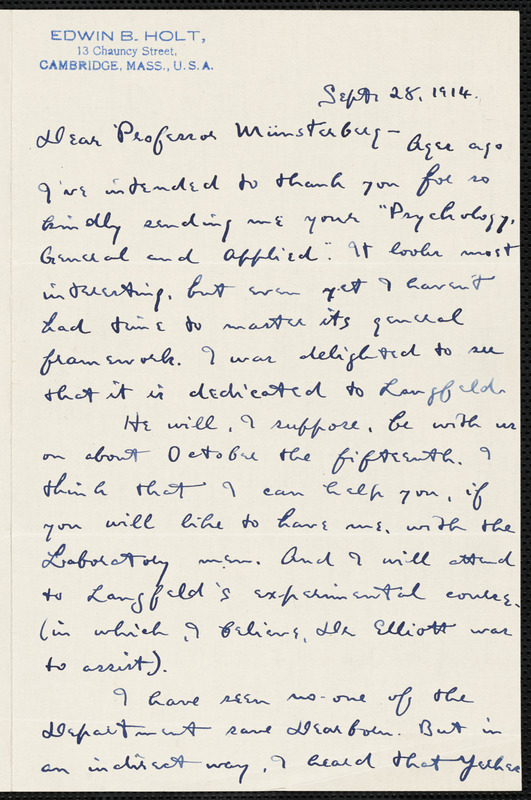 EDWIN B. HOLT,
13 Chauncy Street,
CAMBRIDGE, MASS., U.S.A.
Sept. 28, 1914.
Dear Professor Münsterberg — Ages ago
I've intended to thank you for so
kindly sending me your "Psychology,
General and Applied". It looks most
interesting, but even yet I haven't
had time to master its general
framework. I was delighted to see
that it is dedicated to Langfeld.
He will, I suppose, be with us
on about October the fifteenth. I
think that I can help you, if
you will like to have me, with the
Laboratory men. And I will attend
to Langfeld's experimental course.
(in which, I believe, Dr Elliott was
to assist).
I have seen no-one of the
Department save Dearborn. But in
an indirect way, I heard that Yerkes